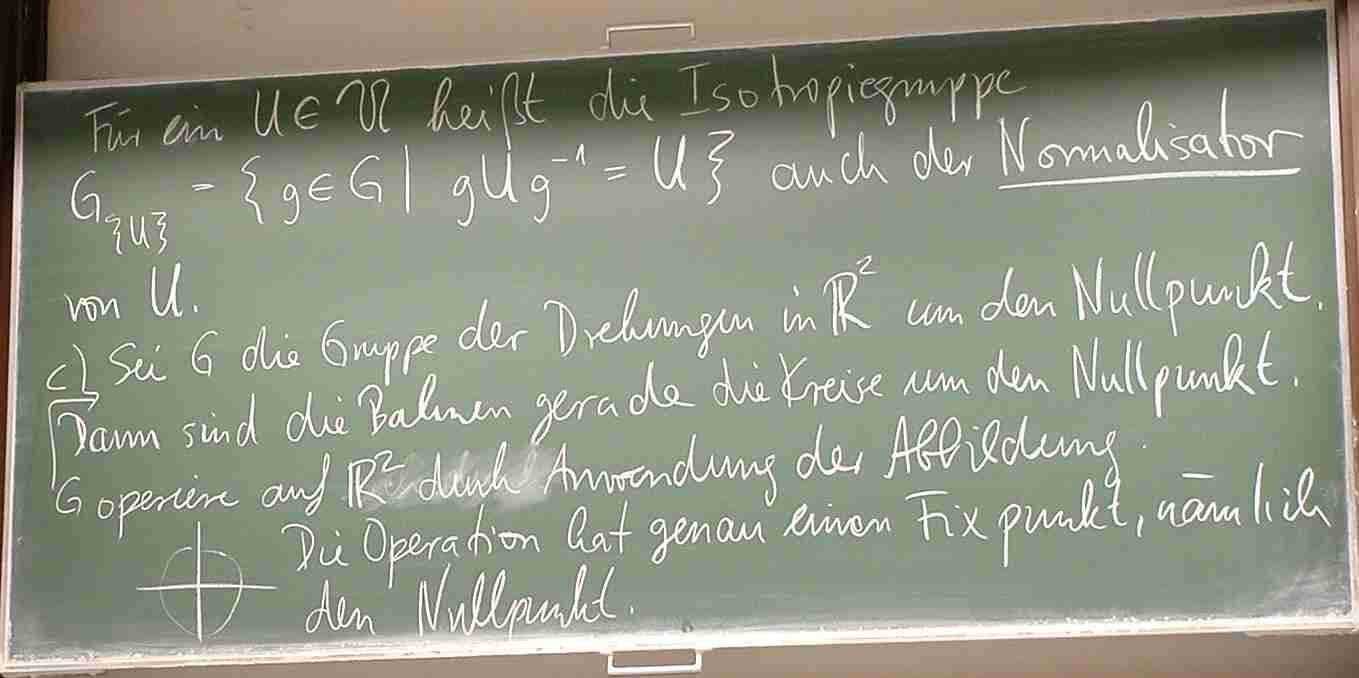 Für ein U ∈ 𝔘 heißt die Isotropiegruppe
G_{U} = {g ∈ G | gUg⁻¹ = U} auch der Normalisator
von U.
c) Sei G die Gruppe der Drehungen in ℝ² um den Nullpunkt.
Dann sind die Bahnen gerade die Kreise um den Nullpunkt.
G operiere auf ℝ² durch Anwendung der Abbildung.
Die Operation hat genau einen Fixpunkt, nämlich
den Nullpunkt.